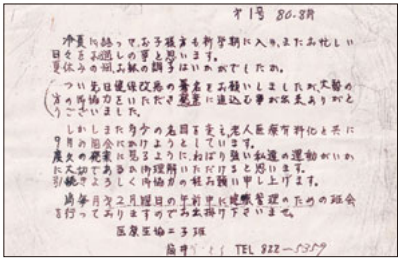 第1号 80.8月
残夏に向って、お子様方も新学期に入り、またお忙しい
日々をお過しの事と思います。
夏休みの間お餅の調子はいかがでしたか。
つい先日健保改悪の署名をお願いしましたが、大勢の
方の御協力をいただき提案に追込む事が出来ありがと
うございました。
しかしまた多少の名目を変え、老人医療有料化と共に
9月の国会にかけようとしています。
農夫の提案に見るように、ねばり強い私達の運動がいか
に大切であるか御理解いただけると思います。
引続きよろしく御協力の程お願い申し上げます。
尚毎月第2月曜日の午前中に健康管理のための班会
を行っておりますのでお出掛け下さいませ。
医療生協二子班
TEL 822-5359